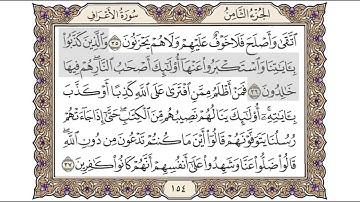 الجزء الثامن
سورة الأعراف
اتقى وأصلح فلا خوف عليهم ولا هم يحزنون ٣٥ والذين كذبوا
بآياتنا واستكبروا عنها أولئك أصحاب النار هم فيها
خالدون ٣٦ فمن أظلم ممن افترى على الله كذبا أو كذب
بآياته أولئك ينالهم نصيبهم من الكتاب حتى إذا جاءتهم
رسلنا يتوفونهم قالوا أين ما كنتم تدعون من دون الله
قالوا ضلوا عنا وشهدوا على أنفسهم أنهم كانوا كافرين ٣٧
١٥٤